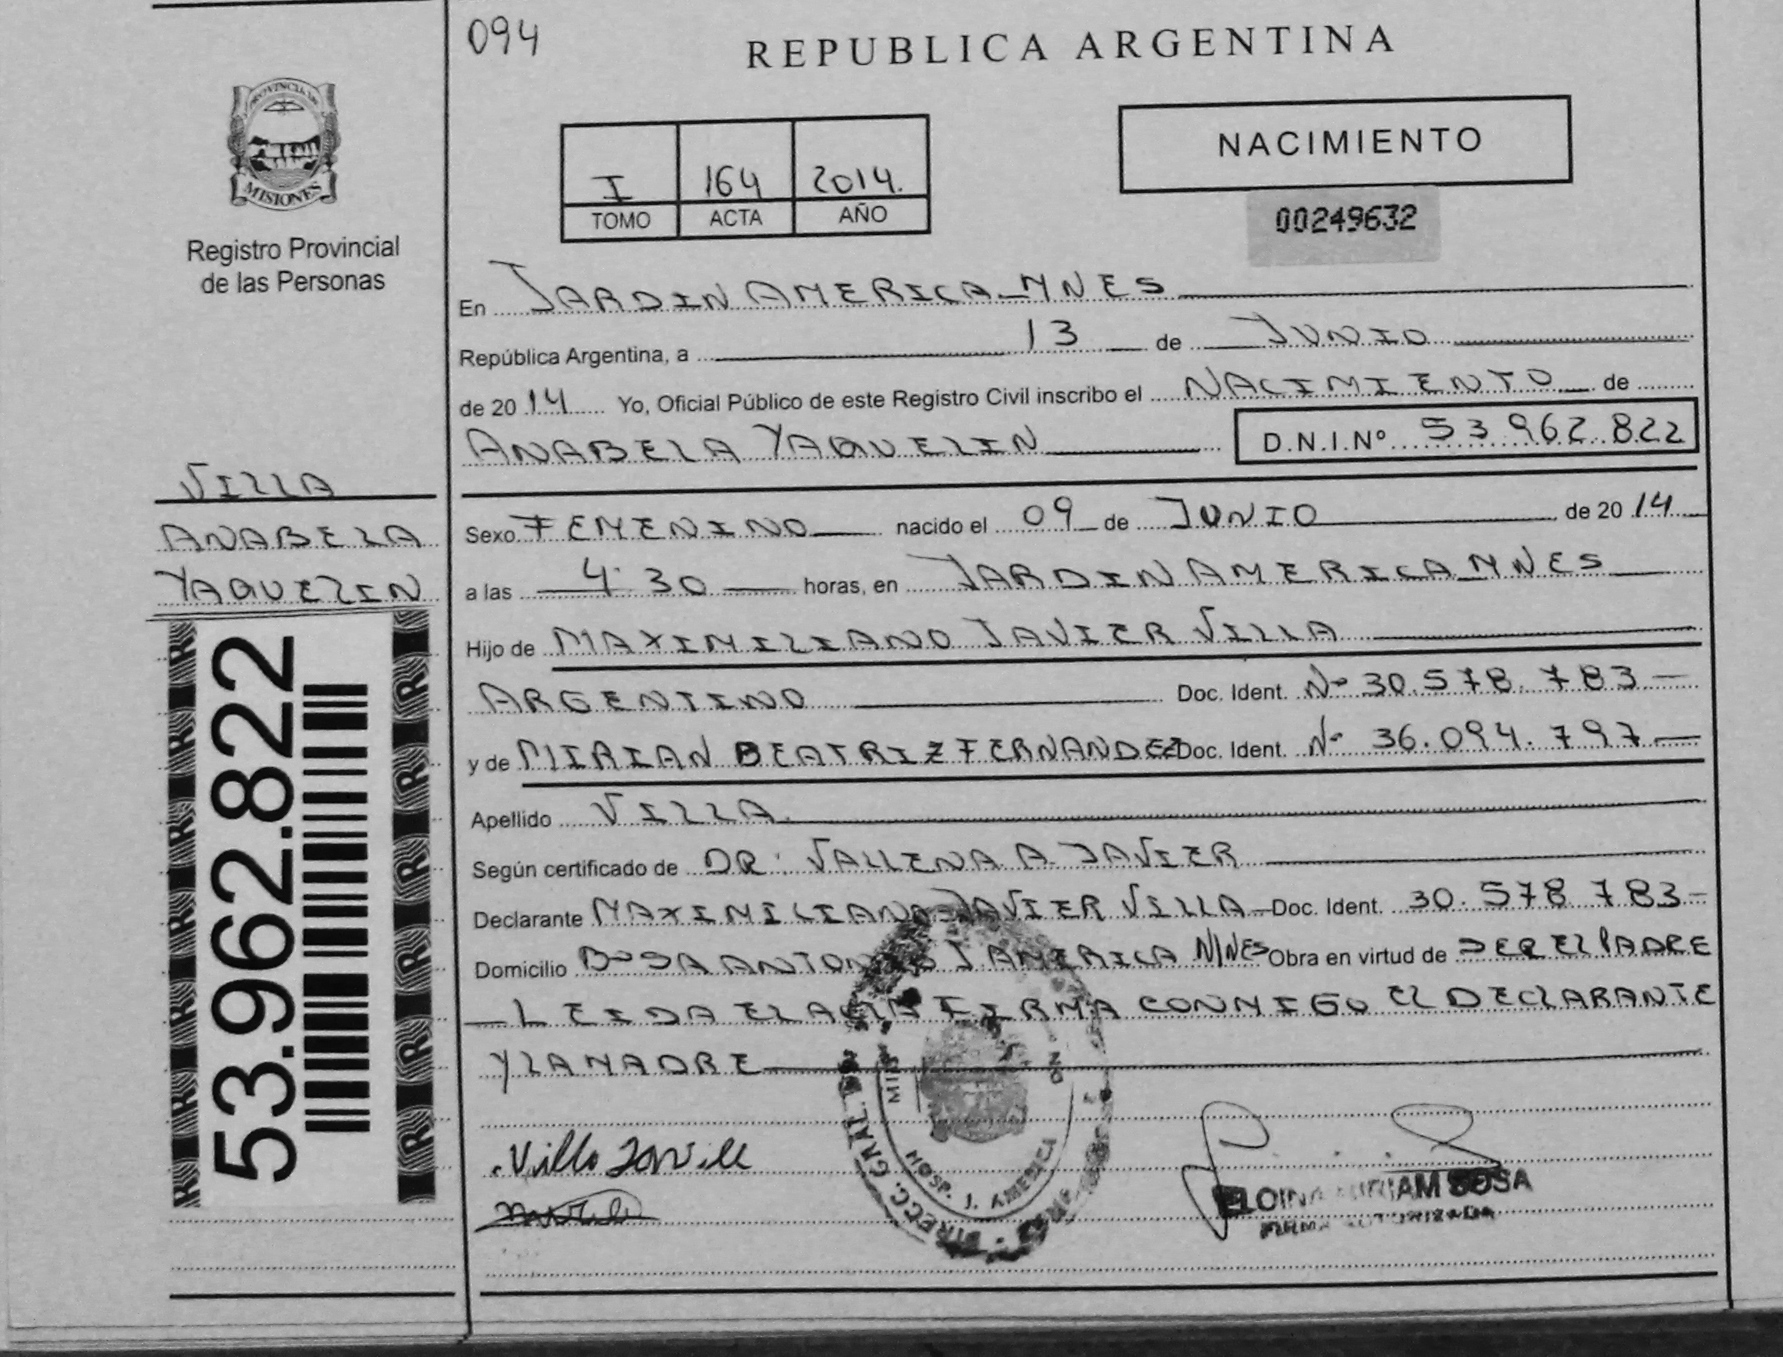 094
REPUBLICA ARGENTINA
PROVINCIA DE
MISIONES
Registro Provincial
de las Personas
I 164 2014.
TOMO ACTA AÑO
NACIMIENTO
00249632
En JARDIN AMERICA_MNES
República Argentina, a 13 de JUNIO
de 2014 Yo, Oficial Público de este Registro Civil inscribo el NACIMIENTO de
ANABELA YAQUELIN D.N.I.Nº 53.962.822
VILLA
ANABELA
YAQUELIN
53.962.822
Sexo FEMENINO nacido el 09 de JUNIO de 2014
a las 4:30 horas, en JARDIN AMERICA MNES
Hijo de MAXIMILIANO JAVIER VILLA
ARGENTINO Doc. Ident. Nº 30.578.783
y de MIRIAN BEATRIZ FERNANDEZ Doc. Ident. Nº 36.094.797
Apellido VILLA.
Según certificado de DR: VALLENA A. JAVIER
Declarante MAXIMILIANO JAVIER VILLA Doc. Ident. 30.578.783
Domicilio Bº SA ANTONIO J AMERICA MNES Obra en virtud de SER EL PADRE
LEIDA EL ACTA FIRMA CONMIGO EL DECLARANTE
Y LA MADRE
Villa Javier
DIRECC. GRAL.
HOSP. J. AMERICA
ELOINA MIRIAM SOSA
FIRMA AUTORIZADA